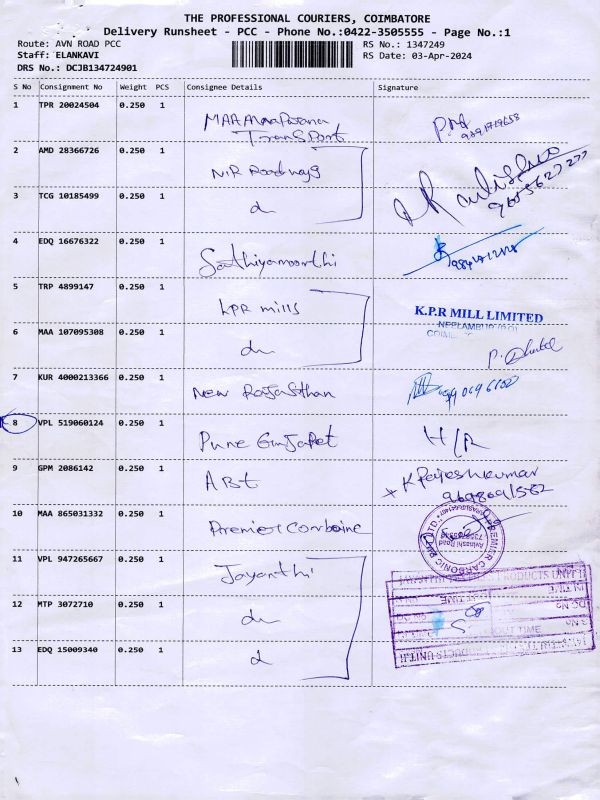 THE PROFESSIONAL COURIERS, COIMBATORE
Delivery Runsheet - PCC - Phone No.:0422-3505555 - Page No.:1
Route: AVN ROAD PCC
RS No.: 1347249
Staff: ELANKAVI
RS Date: 03-Apr-2024
DRS No.: DCJB134724901
S No Consignment No Weight PCS Consignee Details Signature
1 TPR 20024504 0.250 1
Transport
2 AMD 28366726 0.250 1 NIR Roadways
3 TCG 10185499 0.250 1
4 EDQ 16676322 0.250 1 Sathiyamoorthi
5 TRP 4899147 0.250 1 KPR mills
K.P.R MILL LIMITED
6 MAA 107095308 0.250 1
7 KUR 4000213366 0.250 1 New Rajasthan
8 VPL 519060124 0.250 1 Pune Gujarat H/R
9 GPM 2086142 0.250 1 ABt K Rajeshkumar
10 MAA 865031332 0.250 1 Premier
11 VPL 947265667 0.250 1 Jayanthi
12 MTP 3072710 0.250 1
13 EDQ 15009340 0.250 1